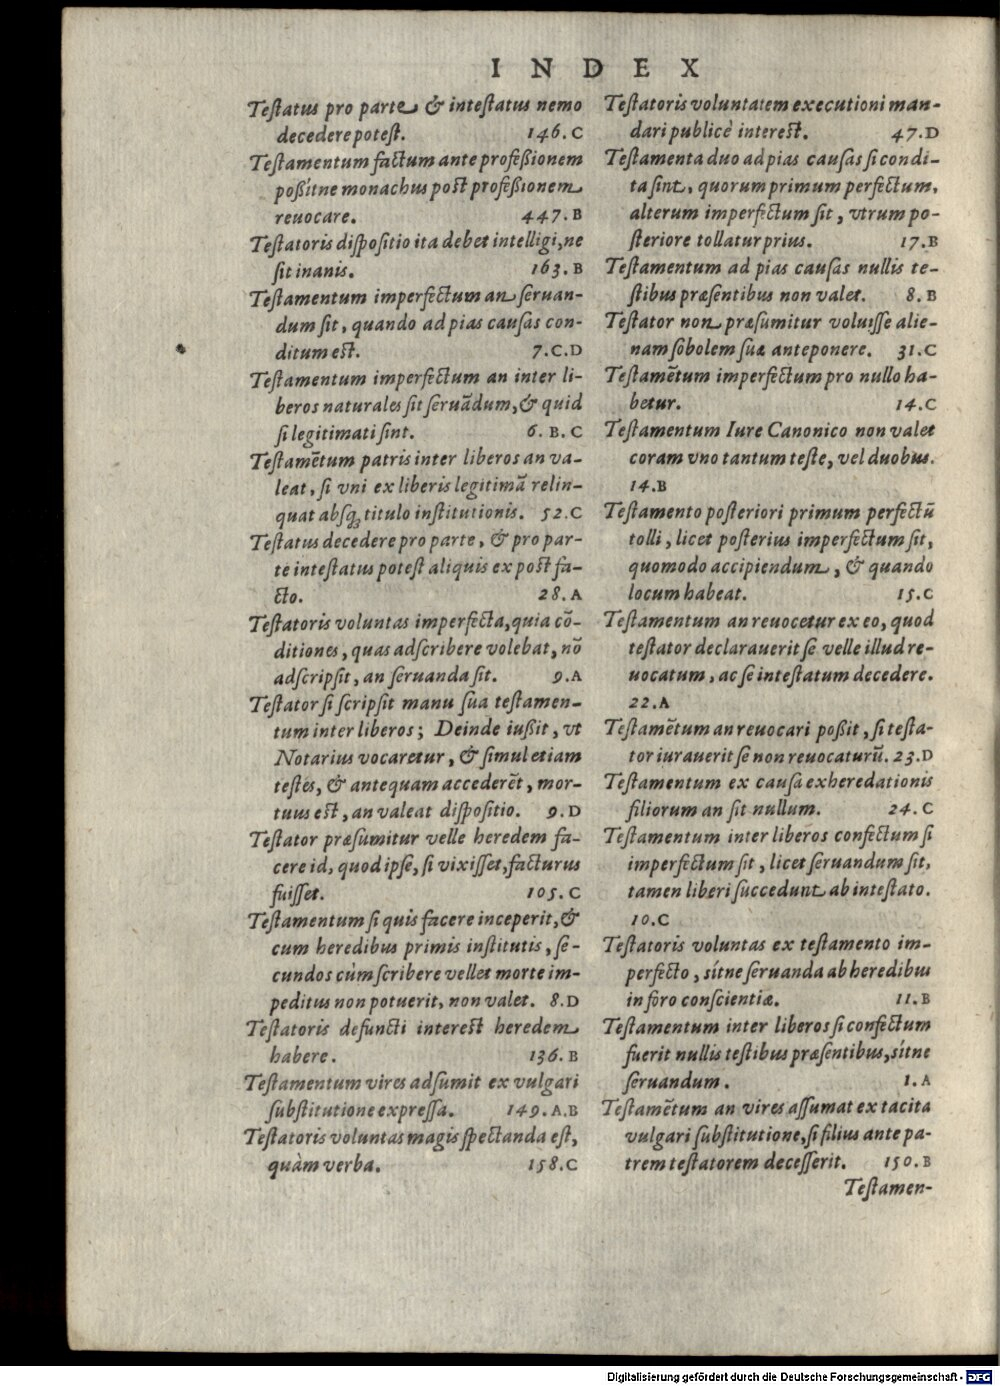 INDEX
Testatus pro parte & intestatus nemo
decedere potest. 146.C
Testamentum factum ante professionem
possitne monachus post professionem
reuocare. 447.B
Testatoris dispositio ita debet intelligi, ne
sit inanis. 163.B
Testamentum imperfectum an seruan-
dum sit, quando ad pias causas con-
ditum est. 7.C.D
Testamentum imperfectum an inter li-
beros naturales sit seruãdum, & quid
si legitimati sint. 6.B.C
Testamẽtum patris inter liberos an va-
leat, si vni ex liberis legitimã relin-
quat absq; titulo institutionis. 52.C
Testatus decedere pro parte, & pro par-
te intestatus potest aliquis ex post fa-
cto. 28.A
Testatoris voluntas imperfecta, quia cõ-
ditiones, quas adscribere volebat, nõ
adscripsit, an seruanda sit. 9.A
Testator si scripsit manu sua testamen-
tum inter liberos; Deinde iussit, vt
Notarius vocaretur, & simul etiam
testes, & antequam accederẽt, mor-
tuus est, an valeat dispositio. 9.D
Testator præsumitur velle heredem fa-
cere id, quod ipse, si vixisset, facturus
fuisset. 105.C
Testamentum si quis facere inceperit, &
cum heredibus primis institutis, se-
cundos cùm scribere vellet morte im-
peditus non potuerit, non valet. 8.D
Testatoris defuncti interest heredem
habere. 136.B
Testamentum vires adsumit ex vulgari
substitutione expressa. 149.A.B
Testatoris voluntas magis spectanda est,
quàm verba. 158.C
Testatoris voluntatem executioni man-
dari publicè interest. 47.D
Testamenta duo ad pias causas si condi-
ta sint, quorum primum perfectum,
alterum imperfectum sit, vtrum po-
steriore tollatur prius. 17.B
Testamentum ad pias causas nullis te-
stibus præsentibus non valet. 8.B
Testator non præsumitur voluisse alie-
nam sobolem suæ anteponere. 31.C
Testamẽtum imperfectum pro nullo ha-
betur. 14.C
Testamentum Iure Canonico non valet
coram vno tantum teste, vel duobus.
14.B
Testamento posteriori primum perfectũ
tolli, licet posterius imperfectum sit,
quomodo accipiendum, & quando
locum habeat. 15.C
Testamentum an reuocetur ex eo, quod
testator declarauerit se velle illud re-
uocatum, ac se intestatum decedere.
22.A
Testamẽtum an reuocari possit, si testa-
tor iurauerit se non reuocaturũ. 23.D
Testamentum ex causa exheredationis
filiorum an sit nullum. 24.C
Testamentum inter liberos confectum si
imperfectum sit, licet seruandum sit,
tamen liberi succedunt ab intestato.
10.C
Testatoris voluntas ex testamento im-
perfecto, sítne seruanda ab heredibus
in foro conscientiæ. 11.B
Testamentum inter liberos si confectum
fuerit nullis testibus præsentibus, sítne
seruandum. 1.A
Testamẽtum an vires assumat ex tacita
vulgari substitutione, si filius ante pa-
trem testatorem decesserit. 150.B
Testamen-
Digitalisierung gefördert durch die Deutsche Forschungsgemeinschaft - DFG